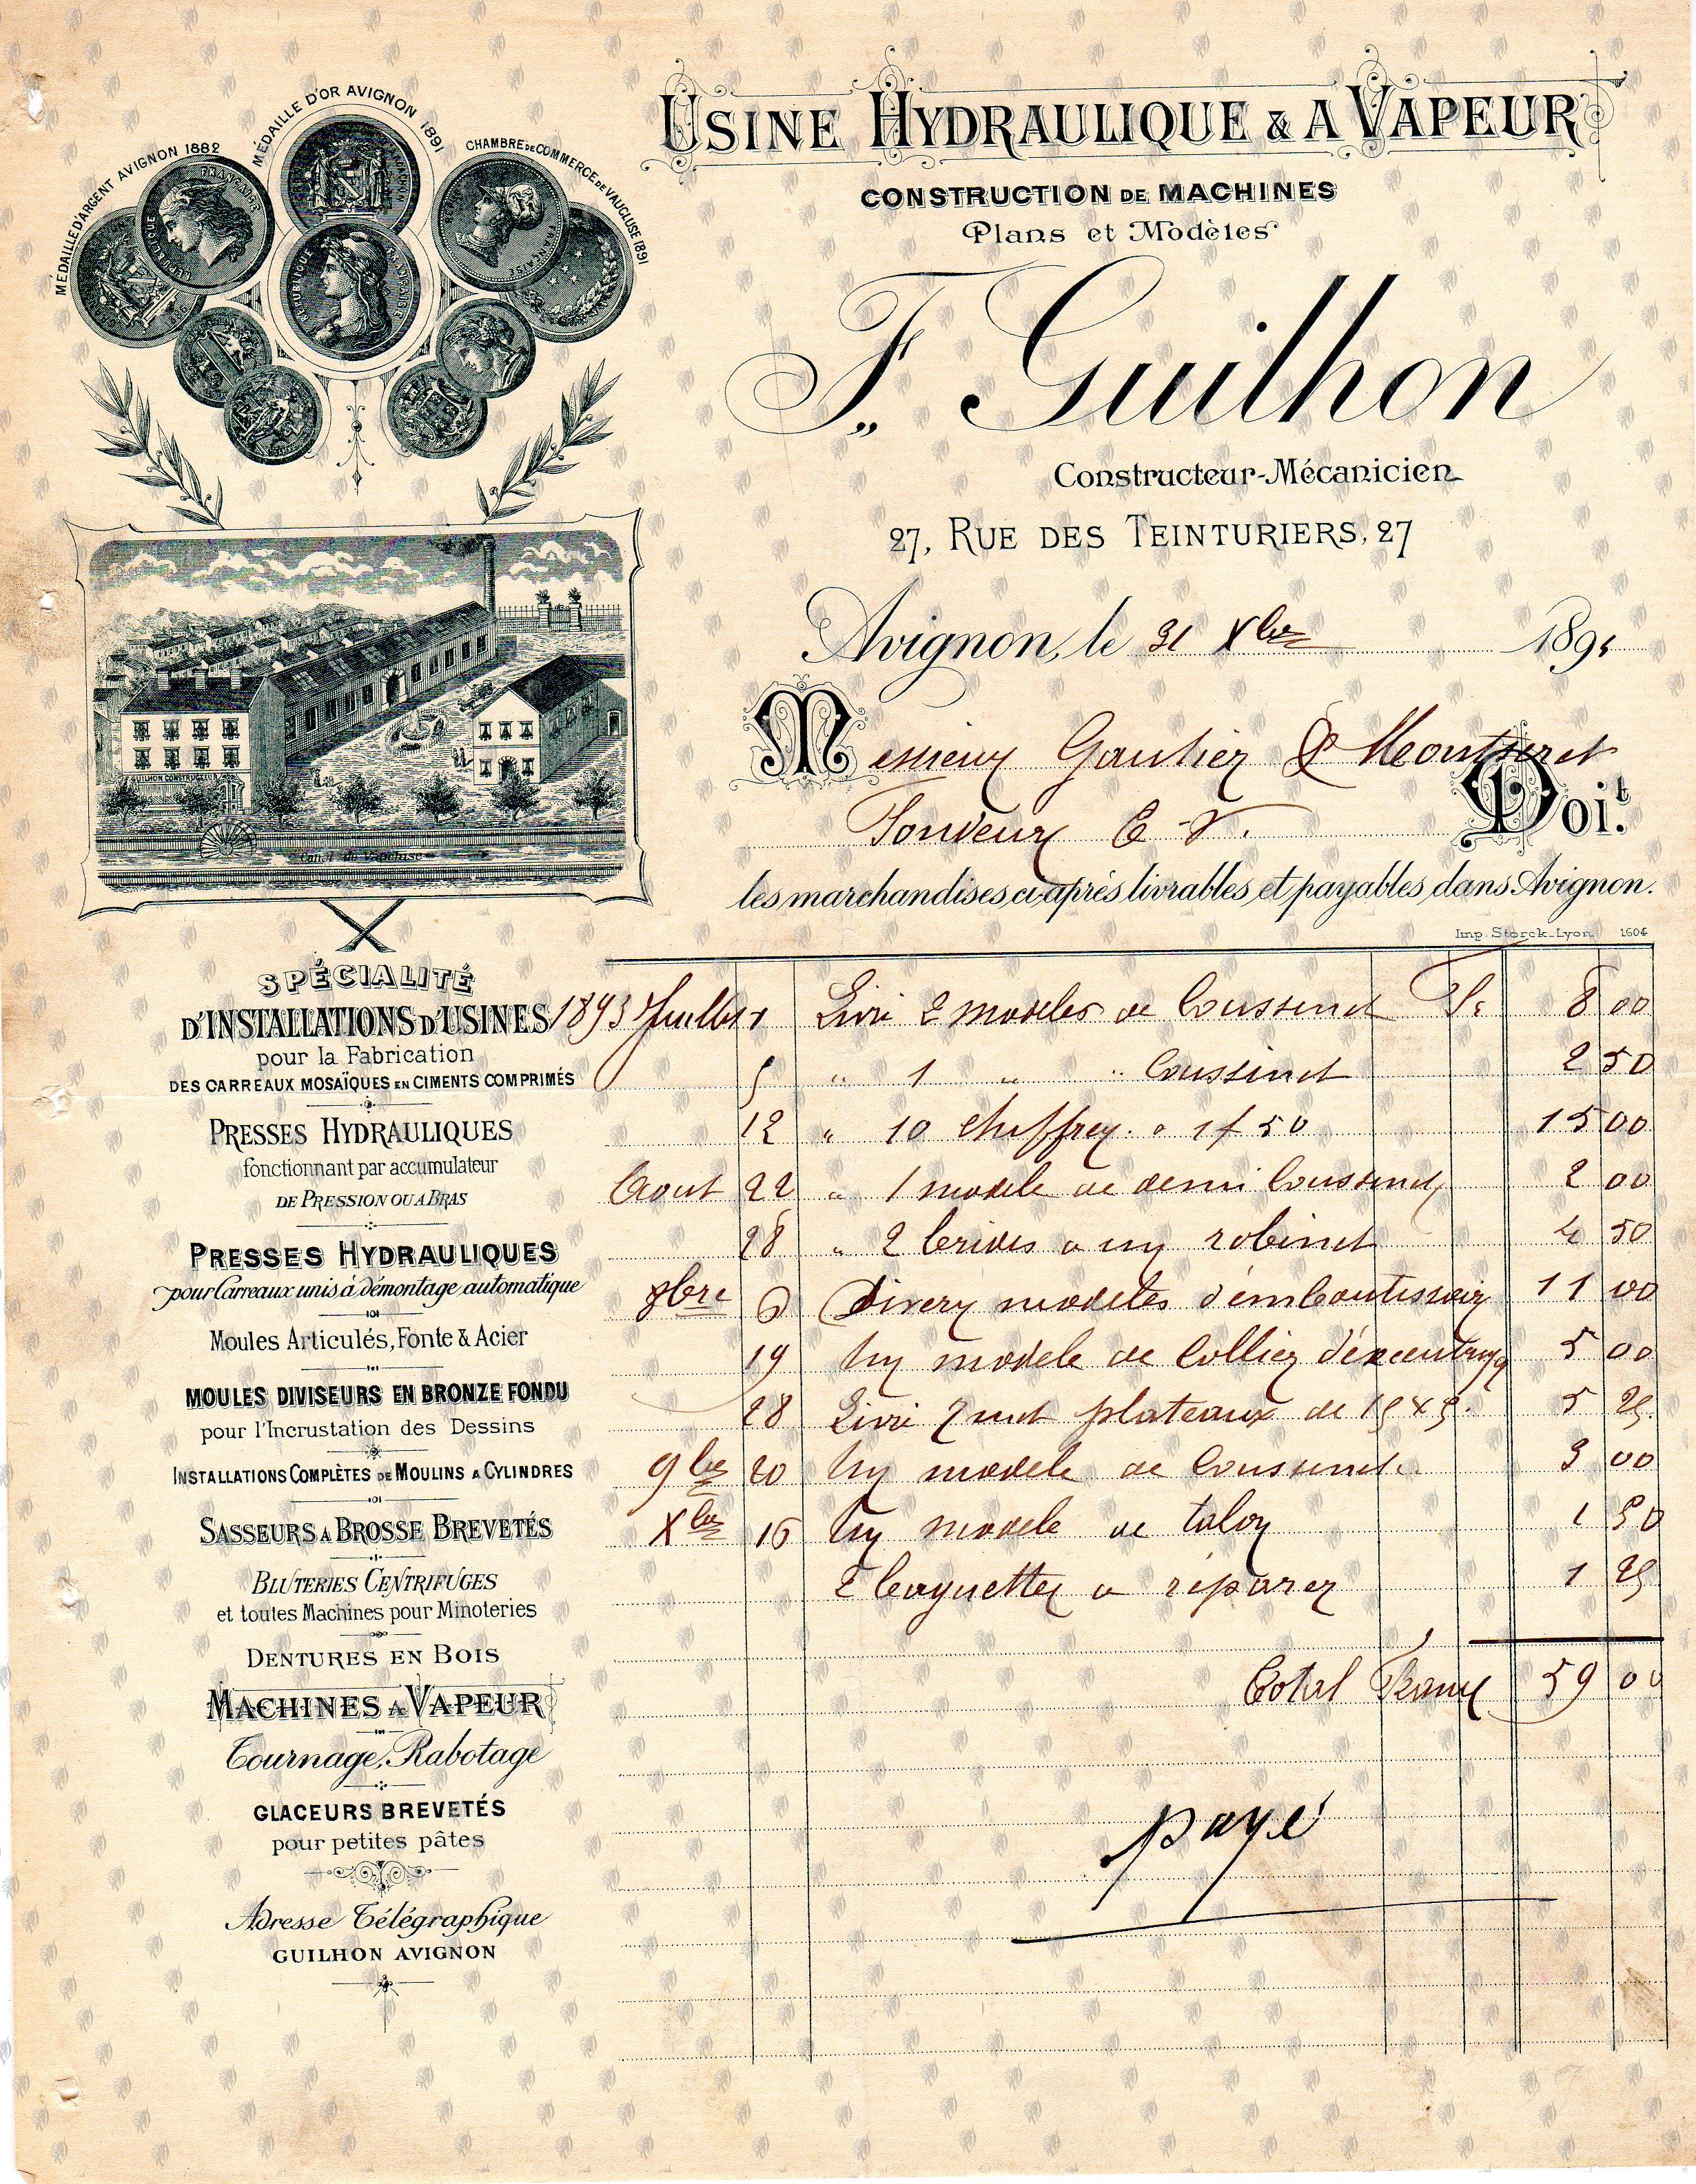 MÉDAILLE D'ARGENT AVIGNON 1882
MÉDAILLE D'OR AVIGNON 1891
CHAMBRE DE COMMERCE DE VAUCLUSE 1891
USINE HYDRAULIQUE & A VAPEUR
CONSTRUCTION DE MACHINES
Plans et Modèles
F. Guilhon
Constructeur-Mécanicien
27, RUE DES TEINTURIERS, 27
Avignon, le 31 Xbre 189
Messieurs Gautier &
Doit
les marchandises ci-après livrables et payables dans Avignon.
Imp. Storck-Lyon 1604
GUILHON CONSTRUCTEUR
Canal de Vaucluse
SPÉCIALITÉ
D'INSTALLATIONS D'USINES
pour la Fabrication
DES CARREAUX MOSAÏQUES EN CIMENTS COMPRIMÉS
PRESSES HYDRAULIQUES
fonctionnant par accumulateur
DE PRESSION OU A BRAS
PRESSES HYDRAULIQUES
pour Carreaux unis à démontage automatique
Moules Articulés, Fonte & Acier
MOULES DIVISEURS EN BRONZE FONDU
pour l'Incrustation des Dessins
INSTALLATIONS COMPLÈTES DE MOULINS A CYLINDRES
SASSEURS A BROSSE BREVETÉS
BLUTERIES CENTRIFUGES
et toutes Machines pour Minoteries
DENTURES EN BOIS
MACHINES A VAPEUR
Tournage, Rabotage
GLACEURS BREVETÉS
pour petites pâtes
Adresse Télégraphique
GUILHON AVIGNON
1893 Juillet 1 Livré 2 modeles de Coussinet Fr 8 00
5 " 1 " " Coussinet 2 50
12 " 10 a 1f50 15 00
Aout 22 " 1 modele de demi Coussinet 2 00
28 " 2 brides a un robinet 4 50
8bre 6 Divers modeles d'emboutissoir 11 00
19 Un modele de Collier d'excentrique 5 00
28 Livré plateaux de 5 25
9bre 20 Un modele de Coussinet 3 00
Xbre 16 Un modele de talon 1 50
2 baguettes a réparer 1 25
Total Francs 59 00
payé